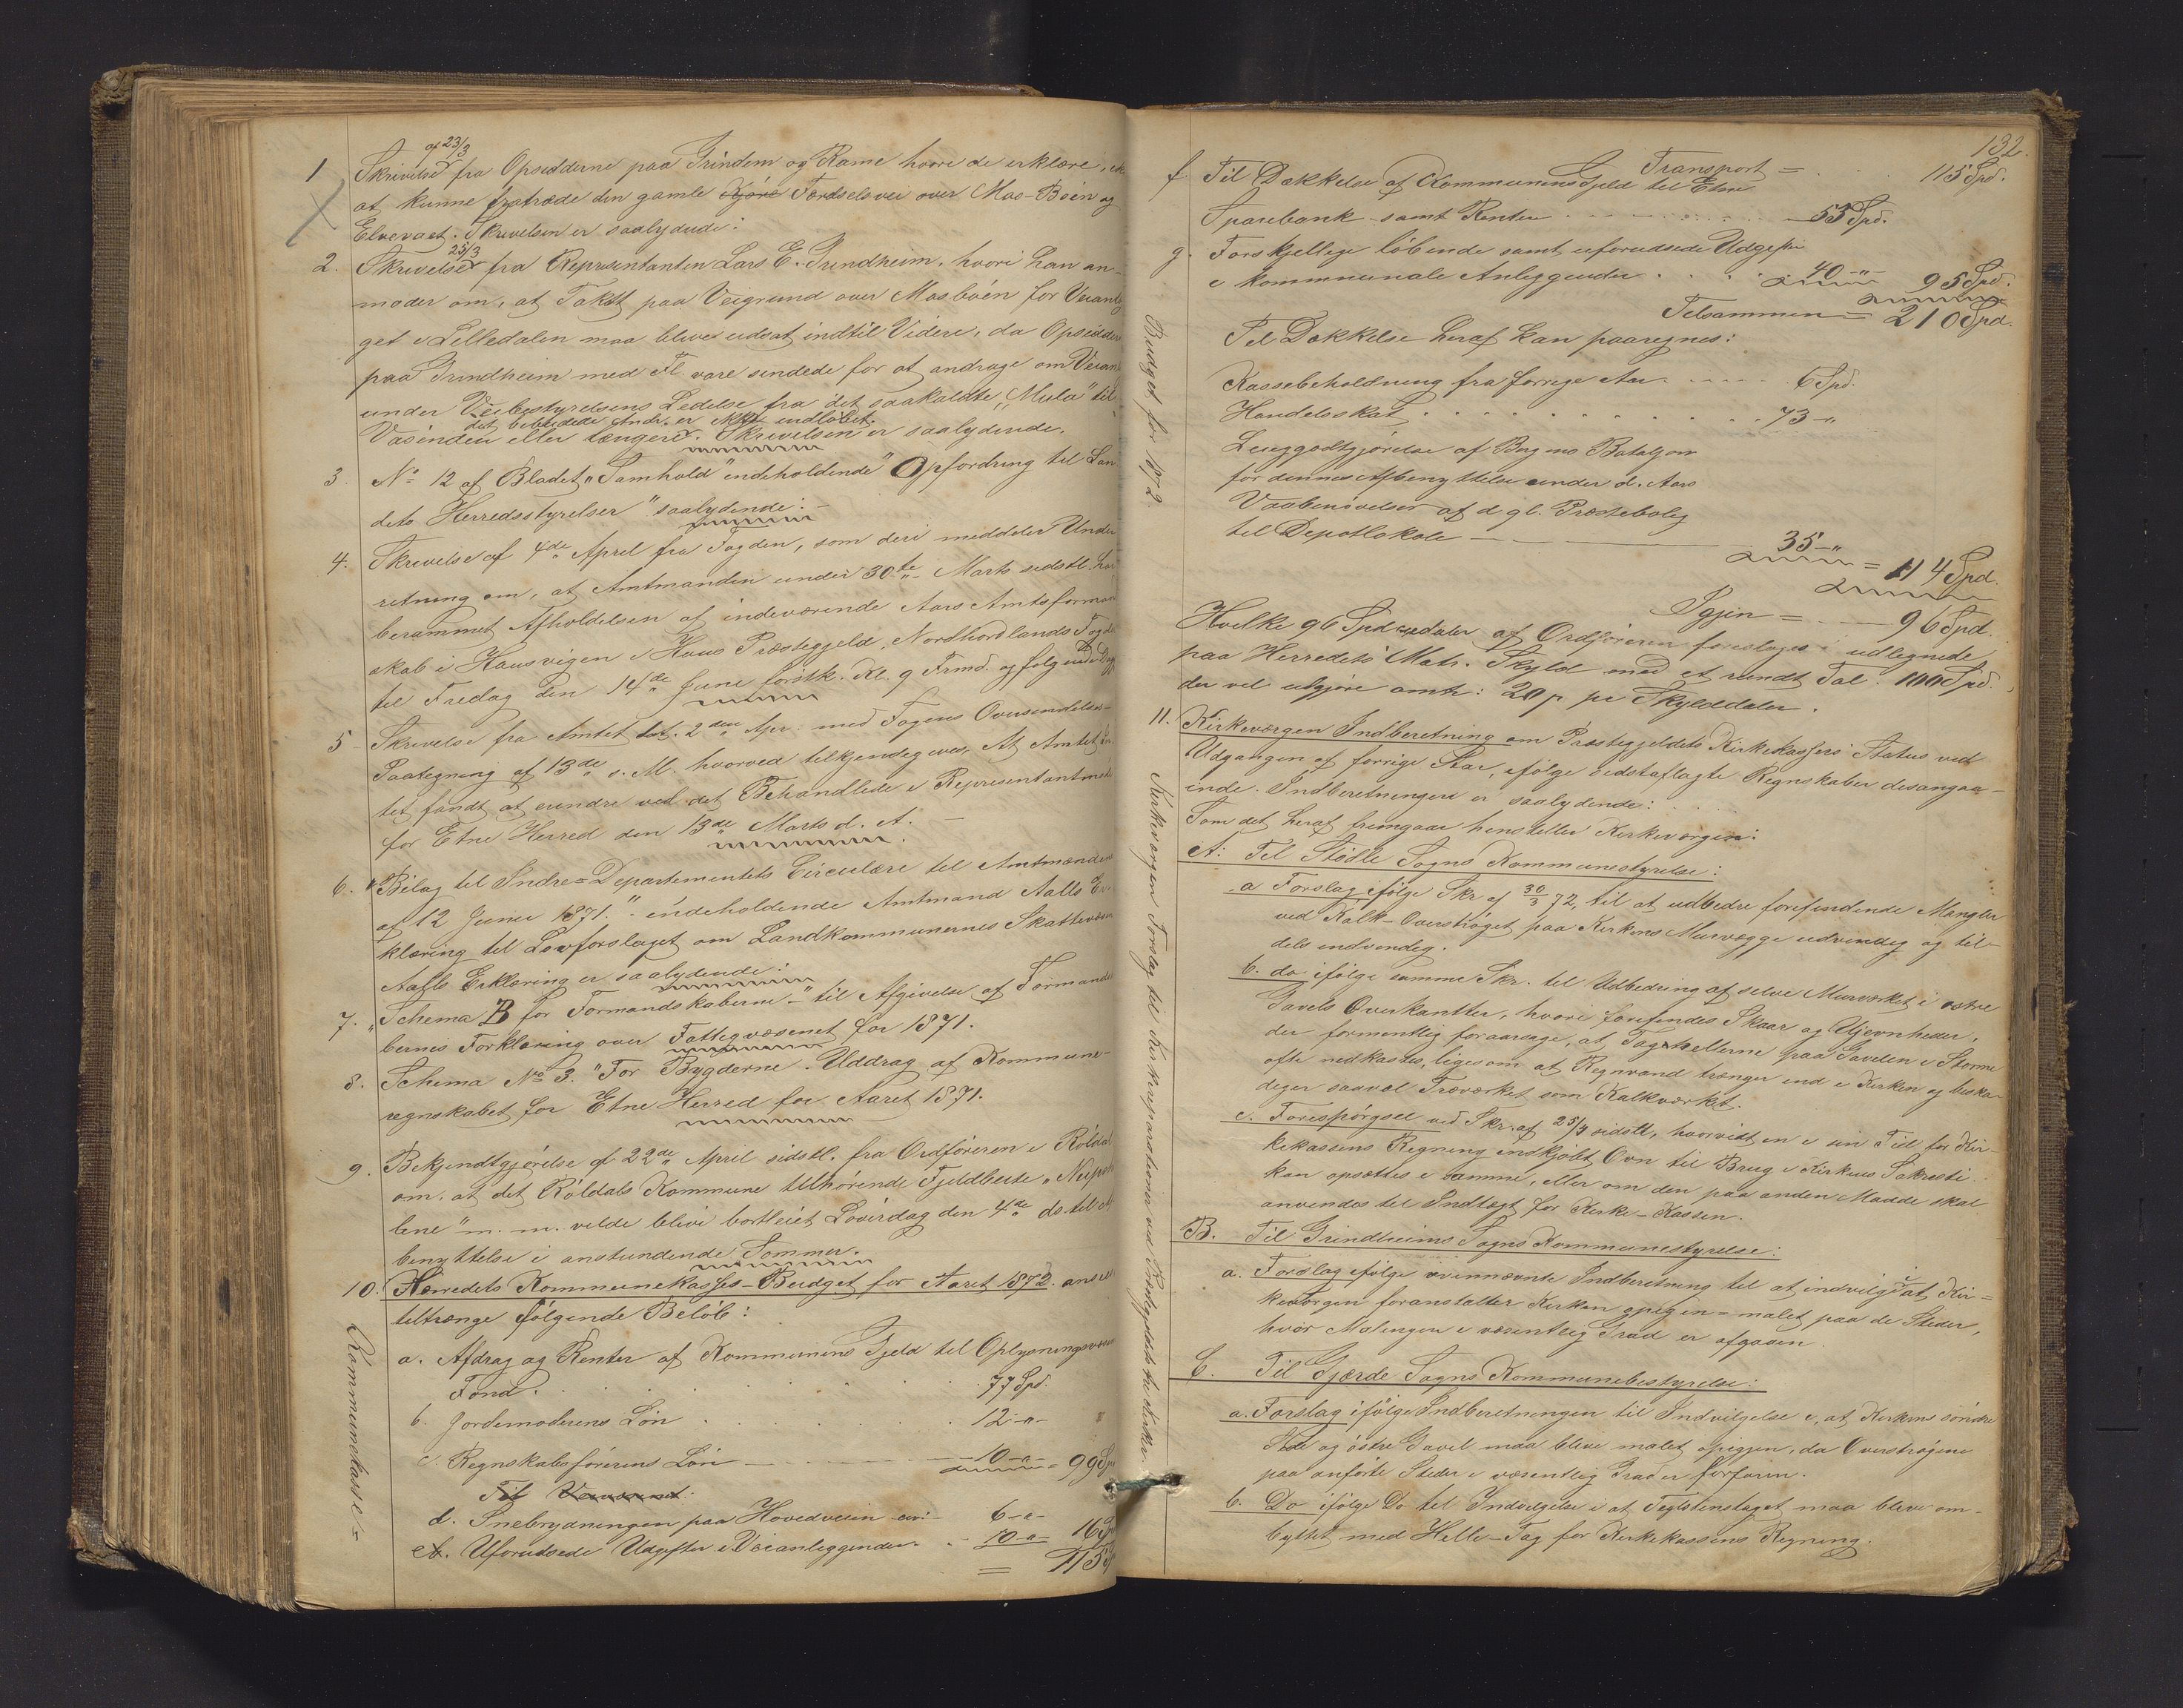 1 Skrivelse af 23/3 fra Opsidderne paa Grindem og Rame hvori de erklære, ik
at kunne fratræde den gamle Kjøre Færdselsvei over Mos-Bøen og
Elvevaet. Skrivelsen er saalydende:
2. Skrivelse 25/3 fra Repræsentanten Lars E. Grindheim, hvori han an-
moder om, at Takst paa Veigrund over Mosbøen for Veianlæg
get i Litledalen maa blive udsat indtil Videre, da Opsidder
paa Grindheim med Fl. vare sindede for at andrage om Veianl
under Veibestyrelsens Ledelse fra det saakaldte "Mula" til
det bebudede Andr. er ikke indløbet.
Vasenden eller længere. Skrivelsen er saalydende.
3 No 12 af Bladet "Samhold" indeholdende "Opfordring til Lan
dets Herredsstyrelser" saalydende: -
4. Skrivelse af 4de April fra Fogden, som deri meddeler Under
retning om, at Amtmanden under 30te Marts sidstl. har
berammet Afholdelsen af indeværende Aars Amtsforman
skab i Hausvigen i Haus Præstegjeld, Nordhordlands Fogde
til Fredag den 14de Juni førstk. Kl. 9 Frmd. og følgende Dag
5 Skrivelse fra Amtet dat. 2den Apr. med Fogens Oversendelses-
Paategning af 13de s. M. hvorved tilkjendegives, At Amtet In
tet fandt at erindre ved det Behandlede i Repræsentantmøde
for Etne Herred den 13de Marts d. A. -
6. "Bilag til Indre-Departementets Circulære til Amtmændene
af 12 Juni 1871." indeholdende Amtmand Aalls Er
klæring til Lovforslaget om Landkommunernes Skattevæsen
Aalls Erklæring er saalydende:
7. "Schema B for Formandskaberne -" til Afgivelse af Formands
bernes Forklaring over Fattigvæsenet for 1871.
8. Schema No 3. "For Bygderne. Uddrag af Kommune-
regnskabet for Etne Herred for Aaret 1871.
9. Bekjendtgjørelse af 22de April sidstl. fra Ordføreren i Røldal
om, at det Røldals Kommune tilhørende Fjeldbeite "Nups
lene" m. m. vilde blive bortleiet Løverdag den 4de ds. til A
benyttelse i anstundende Sommer.
10. Herredets Kommunekasses-Budget for Aaret 1872. ansees
tiltrænge følgende Beløb:
a. Afdrag og Renter af Kommunens Gjeld til Oplysningsvæs
Fond. . . . 77 Spd.
b. Jordemoderens Løn . . . 12 -"-
c. Regnskabsførerens Løn 10 -"- = 99 Sp
Til Veivæsenet:
d. Snebrydningen paa Hovedveien 6 -"-
e. Uforudsede Udgifter i Veianliggender. 10 -"- 16 Sp
= 115 Sp
Kommunekasse=
132.
Transport = . . . 115 Spd.
f. Til Dækkelse af Kommunens Gjeld til Etne
Sparebank samt Renter . . . 55 Spd.
g. Forskjellige løbende samt uforudsede Udgifter
i kommunale Anliggender . . . 40 -"- 95 Spd.
Tilsammen = 210 Spd.
Til Dækkelse heraf kan paaregnes:
Kassebeholdning fra forrige Aar . . . 6 Spd.
Handelsskat . . . 73 -"
Leiegodtgjørelse af Bergens Bataljon
for dennes Afbenyttelse under d. Aars
Vaabenøvelser af d gl. Præstebolig
til Depotlokale 35 -" = 114 Spd.
Igjen = 96 Spd.
Hvilke 96 Spd. af Ordføreren foreslages udlignede
paa Herredets Matr. Skyld med et rundt Tal: 100 Spd.,
der vil utgjøre omtr: 20 p pr Skylddaler.
11. Kirkeværgen Indberetning om Præstegjeldets Kirkekassers Status ved
Udgangen af forrige Aar, ifølge sidstaflagte Regnskaber desangaa-
ende. Indberetningen er saalydende: . . .
Som det heraf fremgaar henstiller Kirkeværgen:
A: Til Stødle Sogns Kommunestyrelse:
a Forslag ifølge Skr af 30/3 72, til at udbedre forefindende Mangler
ved Kalk-Overstrøget paa Kirkens Murvægge udvendig og til-
dels indvendig.
b. do ifølge samme Skr. til Udbedring af selve Murværket i østre
Gavels Overkantter, hvore forefindes Skaar og Ujevnheder,
der formentlig foraarsage, at Taghellerne paa Gavelen i Storme
ofte nedkastes, ligesom at Regnvand trænger ind i Kirken og beska-
diger saavel Træværket som Kalkværket.
c. Forespørgsel ved Skr. af 25/4 sidstl, hvorvidt en i sin Tid for Kir-
kekassens Regning inskjøbt Ovn til Brug i Kirkens Sakresti
kan opsættes i samme, eller om den paa anden Maade skal
anvendes til Indtægt for Kirke-Kassen.
B. Til Grindheims Sogns Kommunestyrelse:
a. Forslag ifølge ovennævnte Indberetning til at indvilge i at Kir-
keværgen foranstalter Kirken opigjen-malet paa de Steder,
hvor Malingen i væsentlig Grad er afgaaen.
C. Til Gjærde Sogns Kommunebestyrelse:
a. Forslag ifølge Indberetningen til Indvilgelse i, at Kirkens søndre
Side og østre Gavel maa blive malet opigjen, da Overstrøgene
paa anførte Steder i væsentlig Grad er forfaren.
b. Do ifølge Do til Indvilgelse i at Teglstenstaget maa blive om-
byttet med Helle-Tag for Kirkekassens Regning.
Budget for 1872.
Kirkeværgen Forslag til Kirkereparationer ved Præstegjeldets tre Kirker.